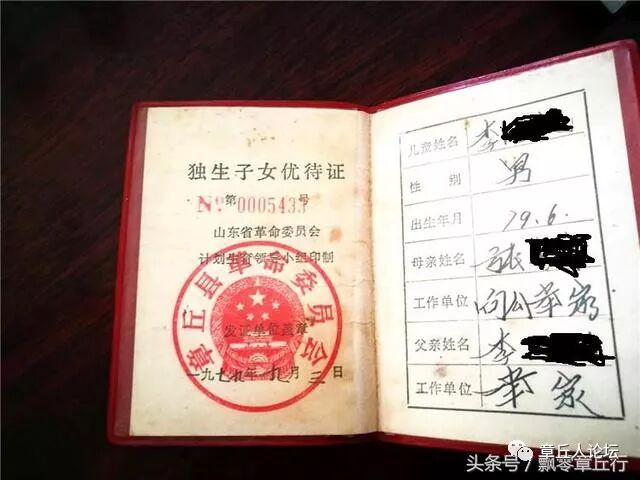 独生子女优待证
№ 第0005433号
山东省革命委员会
计划生育领导小组印制
章丘县革命委员会
发证单位盖章
一九七九年九月三日
儿童姓名 李
性别 男
出生年月 79.6.
母亲姓名 张
工作单位
父亲姓名 李
工作单位
章丘人论坛
头条号/飘零章丘行